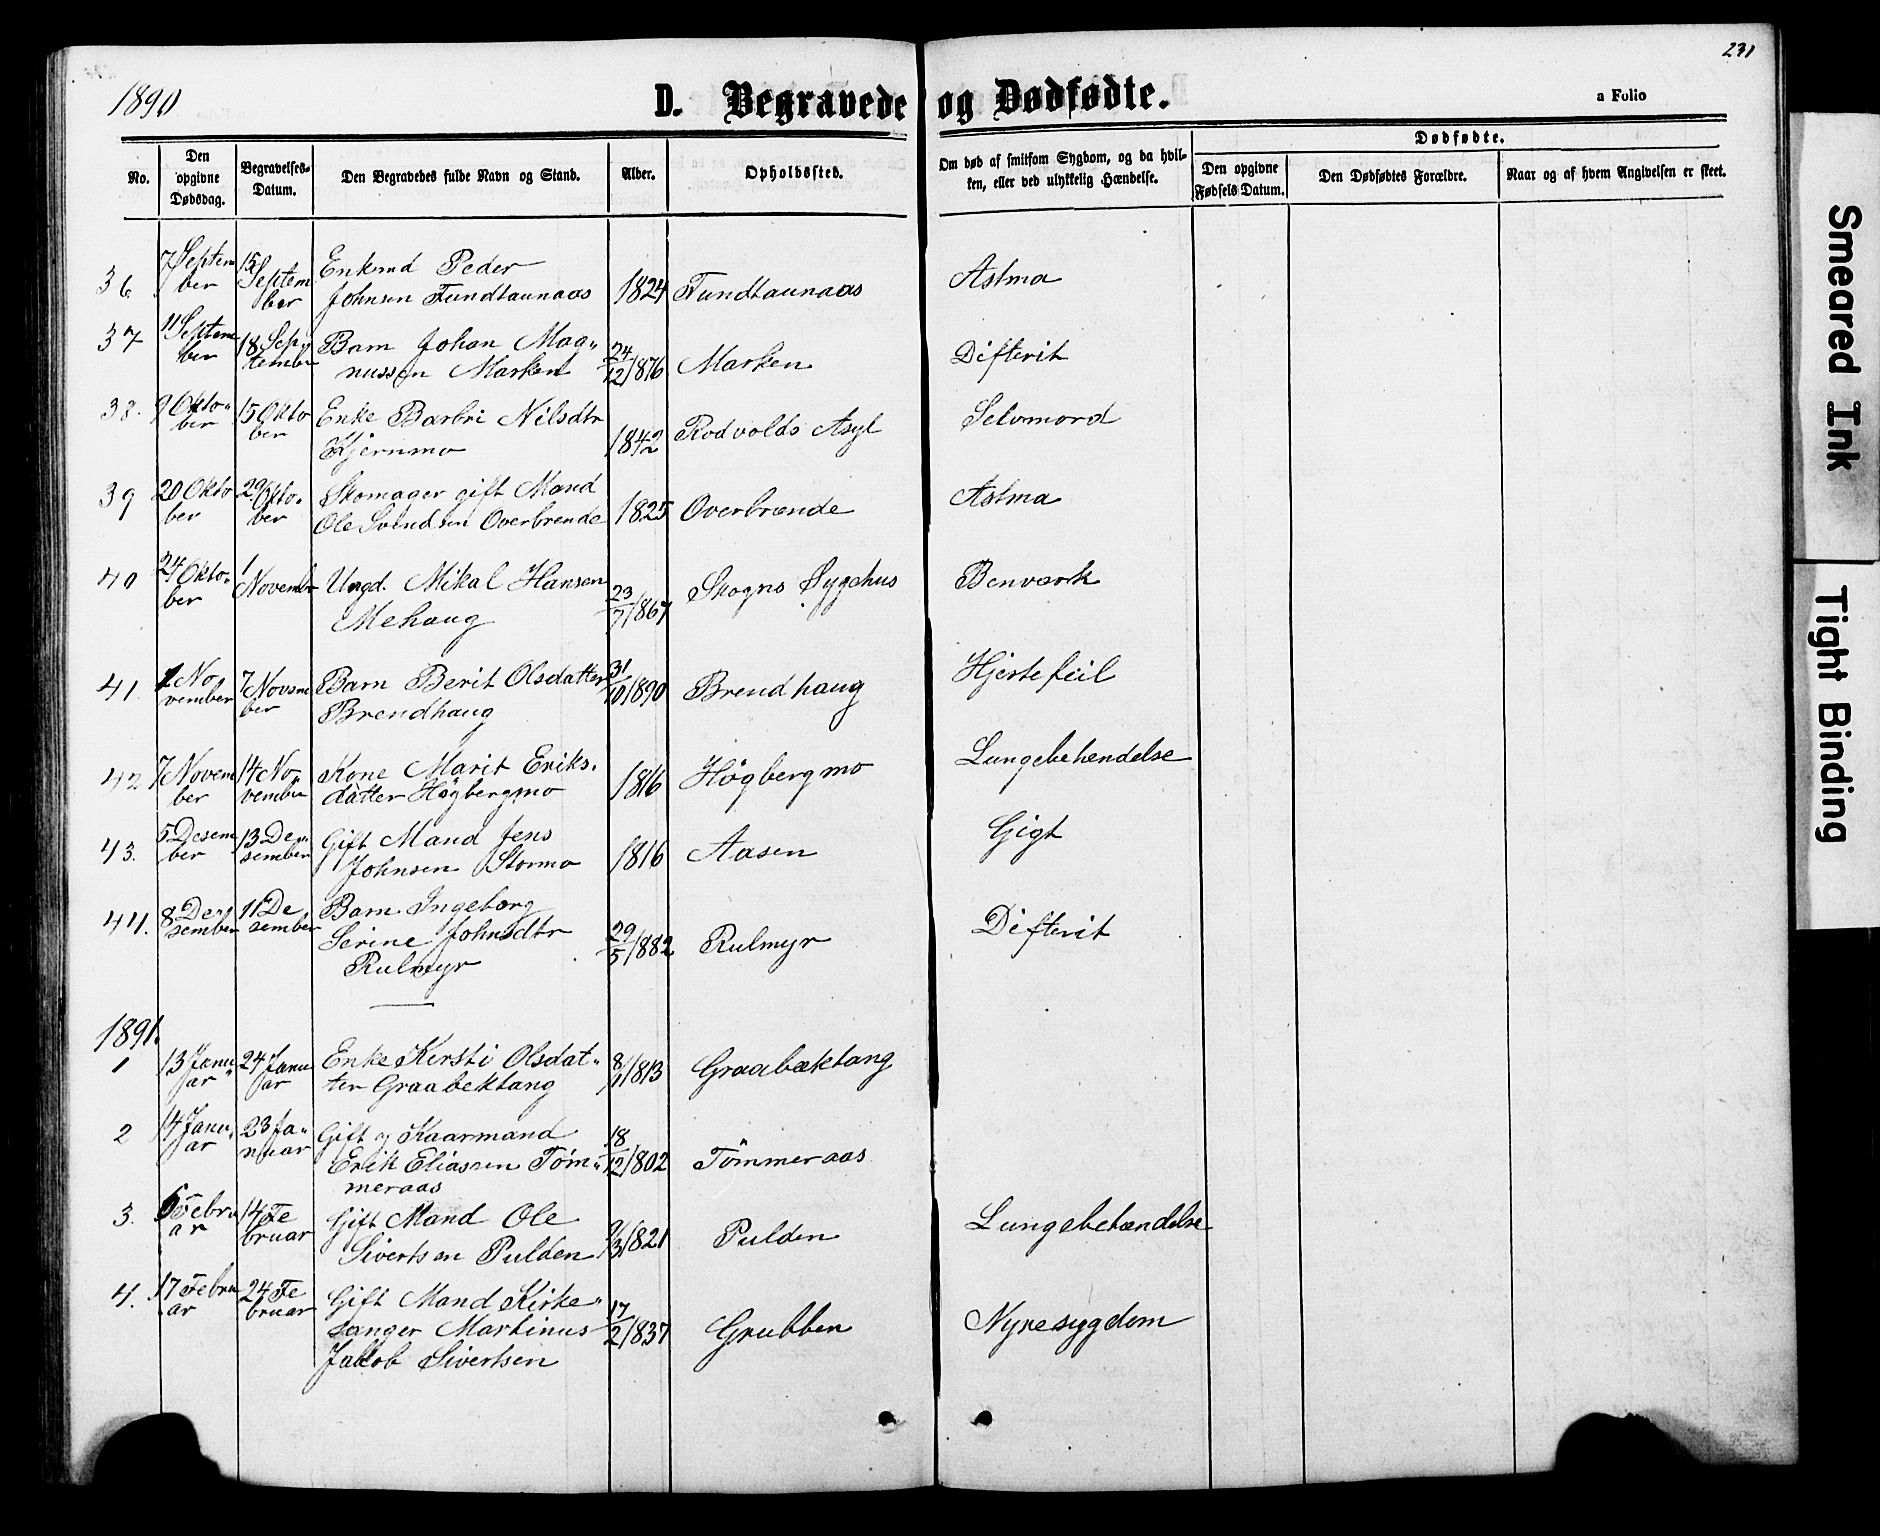 231
1890
D. Begravede og Dødfødte.
a Folio
No.
Den opgivne Dødsdag.
Begravelses-Datum.
Den Begravedes fulde Navn og Stand.
Alder.
Opholdssted.
Om død af smitsom Sygdom, og da hvilken, eller ved ulykkelig Hændelse.
Dødfødte.
Den opgivne Fødsels Datum.
Den Dødfødtes Forældre.
Naar og af hvem Angivelsen er skeet.
36 7 September 15 September Enkemd Peder Johnsen Tundtaunaas 1824 Tundtaunaas Astma
37 11 September 18 September Barn Johan Magnussen Marken 24/12 1876 Marken Difterit
38. 9 Oktober 15 Oktober Enke Barbri Nilsdtr Kjernmo 1842 Rodvolds Asyl Selvmord
39 20 Oktober 29 Oktober Skomager gift Mand Ole Svendsen Overbrende 1825 Overbrænde Astma
40 24 Oktober 1 Novembr Ungd. Mikal Hansen Mehaug 23/7 1867 Skogns Sygehus Benværk
41. 1 November 7 November Barn Berit Olsdatter Brendhaug 31/10 1890 Brendhaug Hjertefeil
42 7 November 14 November Kone Marit Eriksdatter Högbergmo 1816 Högbergmo Lungebetendelse
43. 5 Desember 13 Desember Gift Mand Jens Johnsen Stormo 1816 Aasen Gigt
44. 8 Desember 11 Desember Barn Ingeborg Serine Johnsdtr Rulmyr 29/5 1882 Rulmyr Difterit
1891.
1 13 Januar 24 Januar Enke Kersti Olsdatter Graabektang 8/11 1813 Graabæktang
2 14 Januar 23 Januar Gift og Kaarmand Erik Eliassen Tömmeraas 18/12 1802 Tömmeraas
3. 6 Februar 14 Februar Gift Mand Ole Sivertsen Pulden 9/3 1821 Pulden Lungebetændelse
4. 17 Februar 24 Februar Gift Mand Kirkesanger Martinus Jakob Sivertsen 17/2 1837 Grubben Nyresygdom
Smeared Ink
Tight Binding